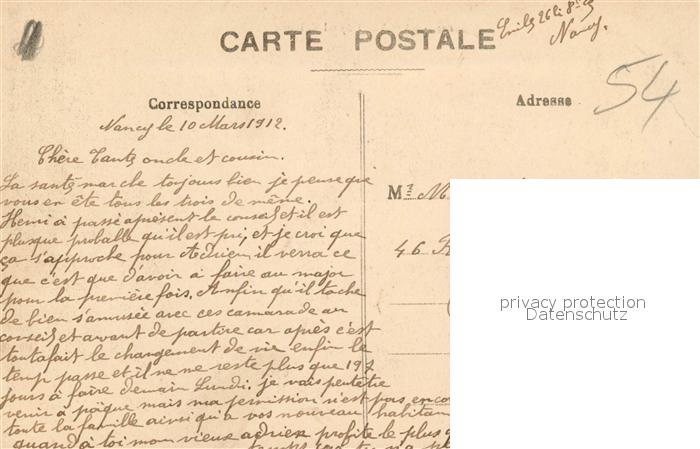 Emile 26e Bon
Nancy.
CARTE POSTALE
54
Correspondance
Adresse
Nancy le 10 Mars 1912.
Chère Tante oncle et cousin.
La santé marche toujours bien je pense que
vous en ête tous les trois de même.
Henri à passé aprésent le conseil et il est
plusque proballe qu'il est pri, et je croi que
ça s'approche pour Adrien il verra ce
que c'est que d'avoir à faire au major
pour la première fois. Anfin qu'il tache
de bien s'amusée avec ces camarade au
conseil et avant de partire car après c'est
toutafait le changement de vie enfin le
temp passe et il ne me reste plus que 197
jours à faire demain Lundi. je vais peutetre
venir à pâque mais ma permission n'est pas enco
toute la famille ainsi qu'a vos nouveau habitan
quand à toi mon vieux adrien profite le plus
Mr M
46 R
privacy protection
Datenschutz